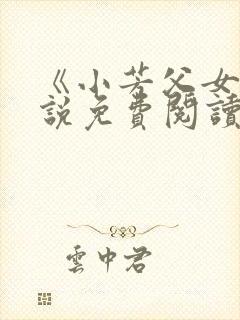 《小芳父女
說免費閱讀
雲中君